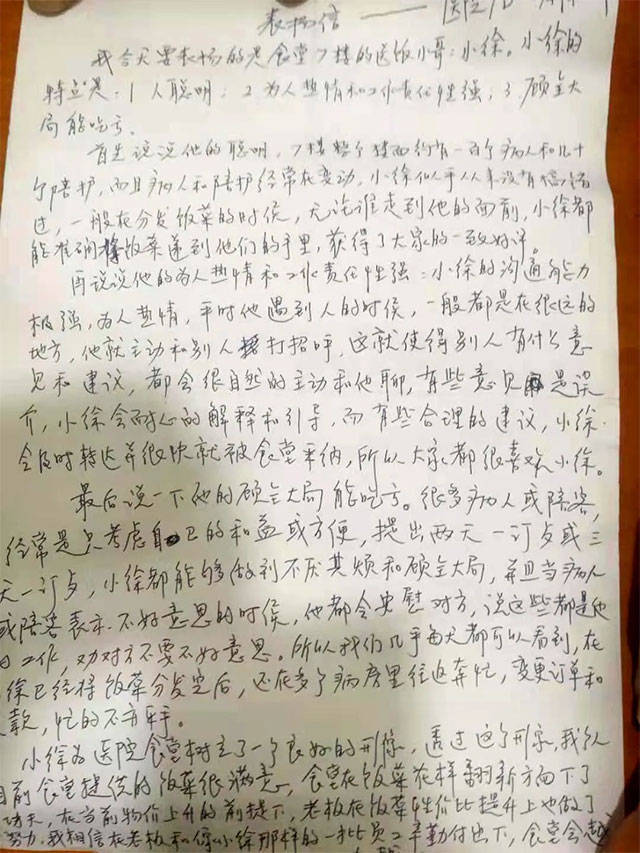 表扬信 —— 医院
我今天要表扬的是食堂7楼的送饭小哥：小徐。小徐的
特点是：1 人聪明；2 为人热情和工作责任性强；3 顾全大
局能吃亏。
首先说说他的聪明，7楼整个楼面约有一百个病人和几十
个陪护，而且病人和陪护经常在变动，小徐似乎从来没有搞错
过，一般在分发饭菜的时候，无论谁走到他的面前，小徐都
能准确将饭菜递到他们的手里，获得了大家的一致好评。
再说说他的为人热情和工作责任性强：小徐的沟通能力
极强，为人热情，平时他遇到人的时候，一般都是在很远的
地方，他就主动和别人打招呼，这就使得别人有什么意
见和建议，都会很自然的主动和他聊，有些意见是误
介，小徐会耐心的解释和引导，而有些合理的建议，小徐
会及时转达并很快就被食堂采纳，所以大家都很喜欢小徐。
最后说一下他的顾全大局能吃亏。很多病人或陪客，
经常是只考虑自己的利益或方便，提出两天一订或三
天一订，小徐都能够做到不厌其烦和顾全大局，并且当病人
或陪客表示不好意思的时候，他都会安慰对方，说这些都是他
工作，劝对方不要不好意思。所以我们几乎每天都可以看到，在
徐已经将饭菜分发完后，还在多个病房里往返奔忙，变更订单和
款，忙的不亦乎。
小徐为医院食堂树立了一个良好的形像，透过这个形象，我们
目前食堂提供的饭菜很满意，食堂在饭菜花样翻新方面下了
功夫，在当前物价上升的前提下，老板在饭菜性价比提升上也做了
努力。我相信在老板和像小徐那样的一批员工辛勤付出下，食堂会越